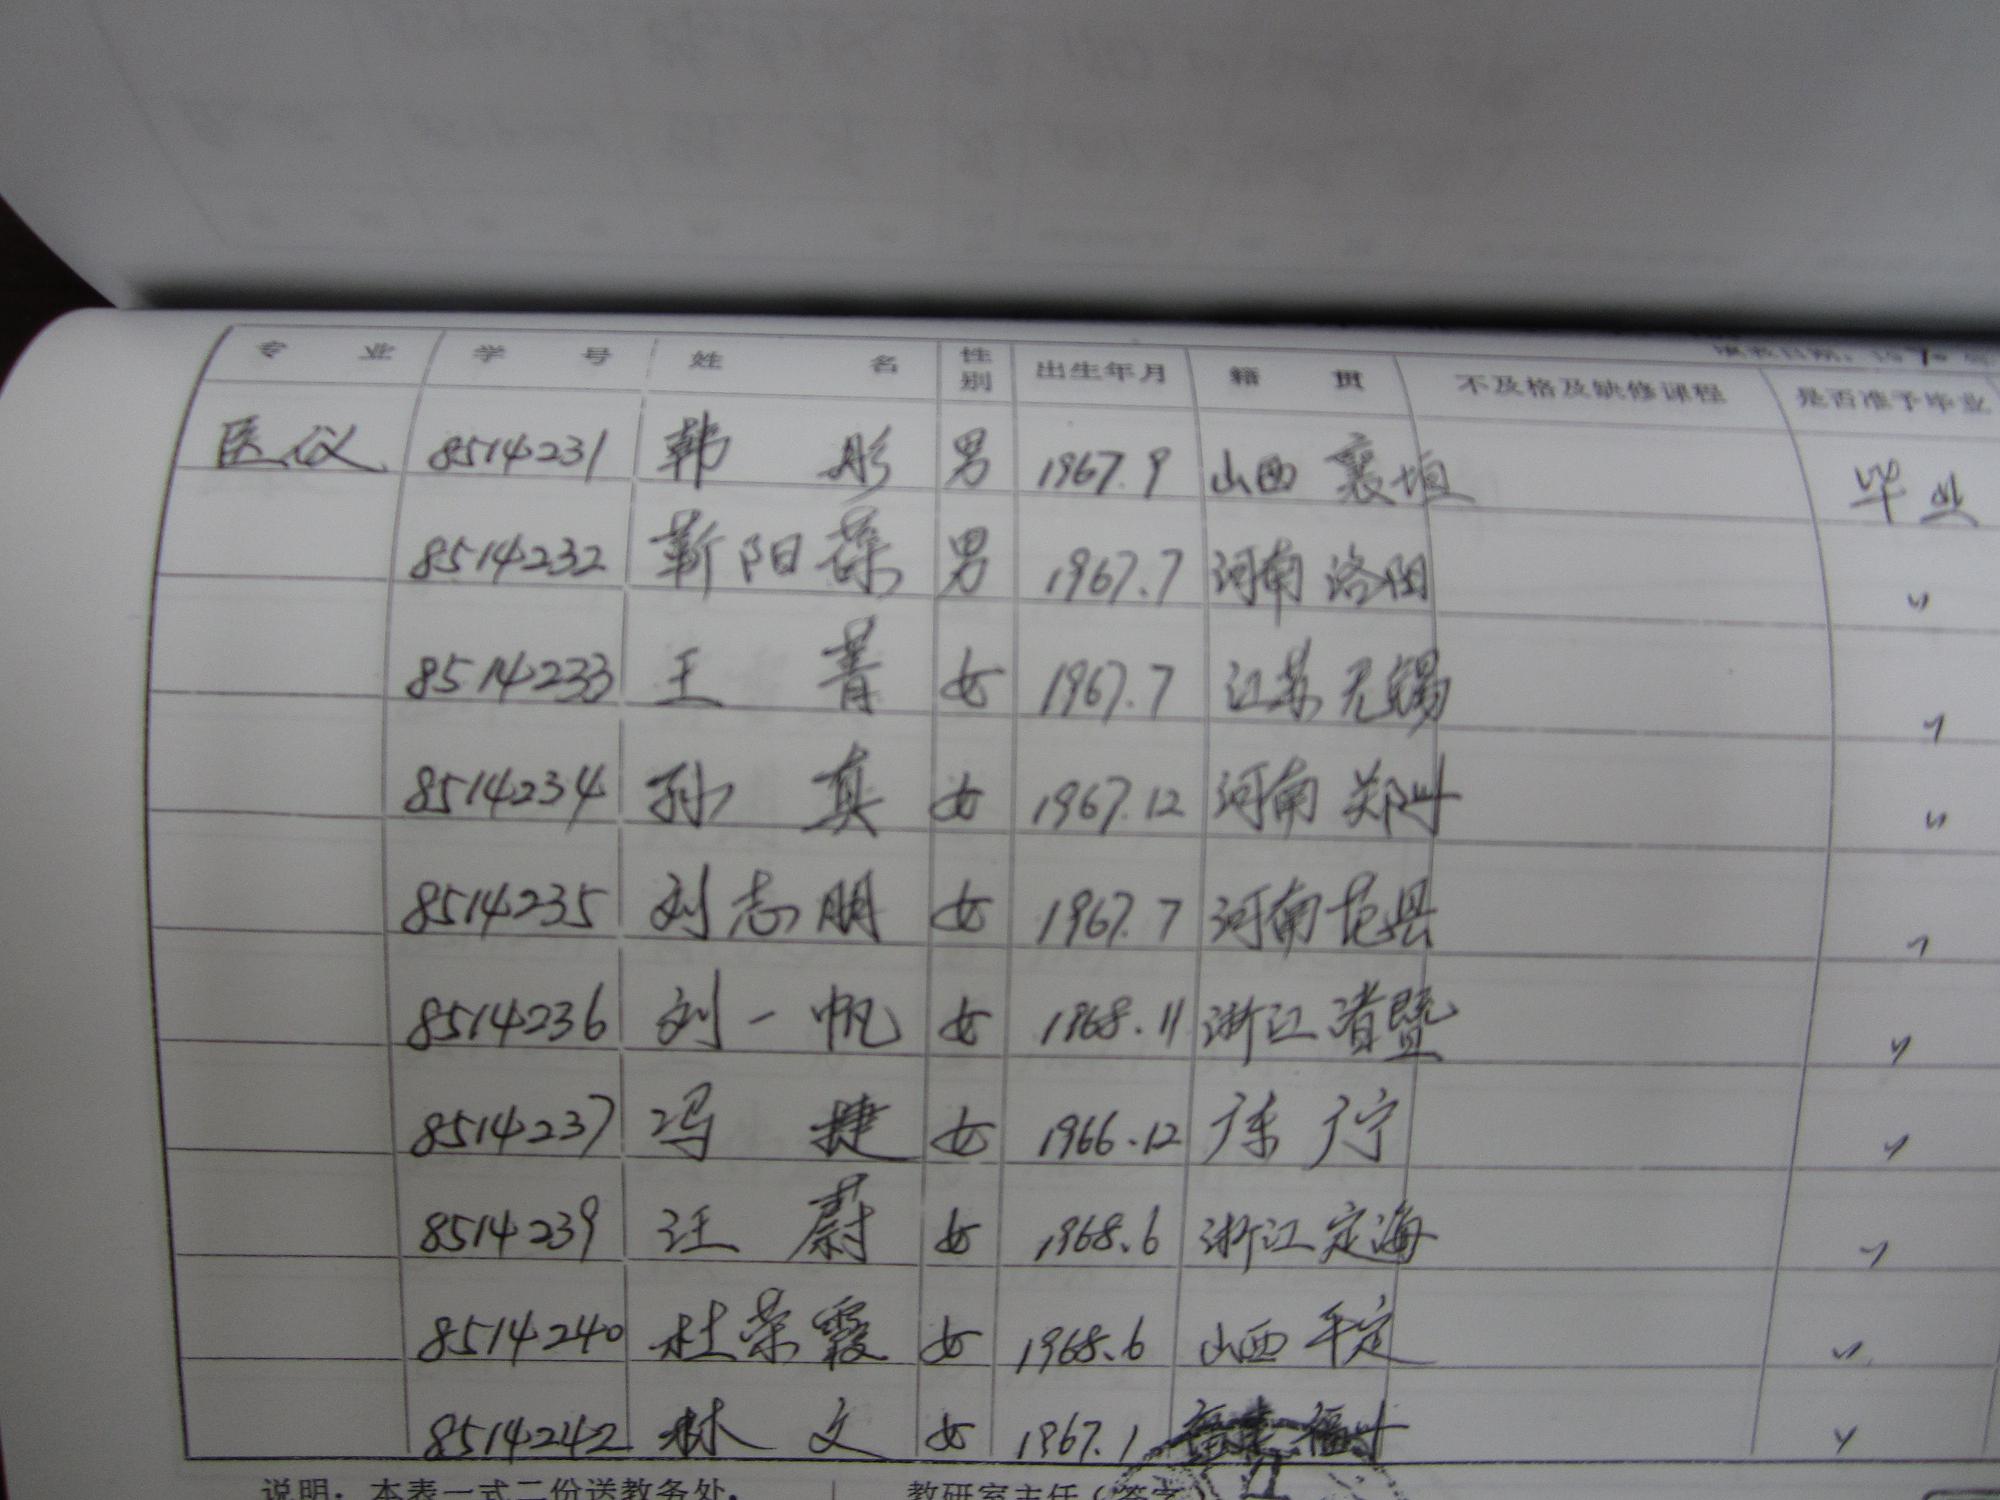 专 业 学 号 姓 名 性别 出生年月 籍 贯 不及格及缺修课程 是否准予毕业
医仪 8514231 韩 彤 男 1967.9 山西 襄垣 毕业
8514232 靳阳葆 男 1967.7 河南 洛阳 〃
8514233 王 菁 女 1967.7 江苏 无锡 〃
8514234 孙 真 女 1967.12 河南 郑州 〃
8514235 刘志朋 女 1967.7 河南 范县 〃
8514236 刘一帆 女 1968.11 浙江 诸暨 〃
8514237 冯 捷 女 1966.12 广东 〃
8514239 汪 蔚 女 1968.6 浙江 定海 〃
8514240 杜荣霞 女 1968.6 山西 平定 〃
8514242 林 文 女 1967.1 福建 福州 〃
说明：本表一式二份送教务处. 教研室主任（签字）